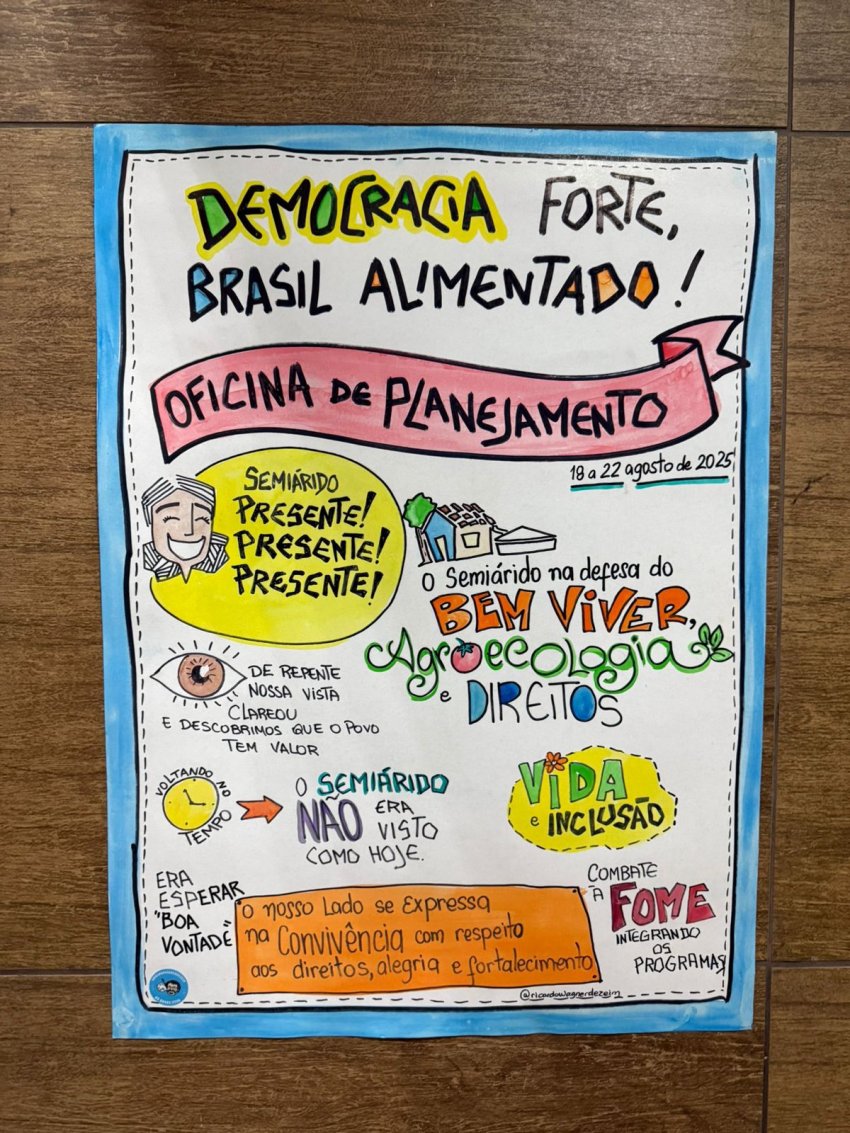 DEMOCRACIA FORTE,
BRASIL ALIMENTADO!
OFICINA DE PLANEJAMENTO
18 a 22 agosto de 2025
SEMIÁRIDO
PRESENTE!
PRESENTE!
PRESENTE!
O Semiárido na defesa do
BEM VIVER,
Agroecologia
e DIREITOS
DE REPENTE
NOSSA VISTA
CLAREOU
E DESCOBRIMOS QUE O POVO
TEM VALOR
VOLTANDO NO
TEMPO
O SEMIÁRIDO
NÃO ERA
VISTO
COMO HOJE.
VIDA
e INCLUSÃO
ERA
ESPERAR
"BOA
VONTADE"
O nosso Lado se Expressa
na Convivência com respeito
aos direitos, alegria e fortalecimento
COMBATE
À FOME
INTEGRANDO
OS
PROGRAMAS
@ricardowagnerdezoim